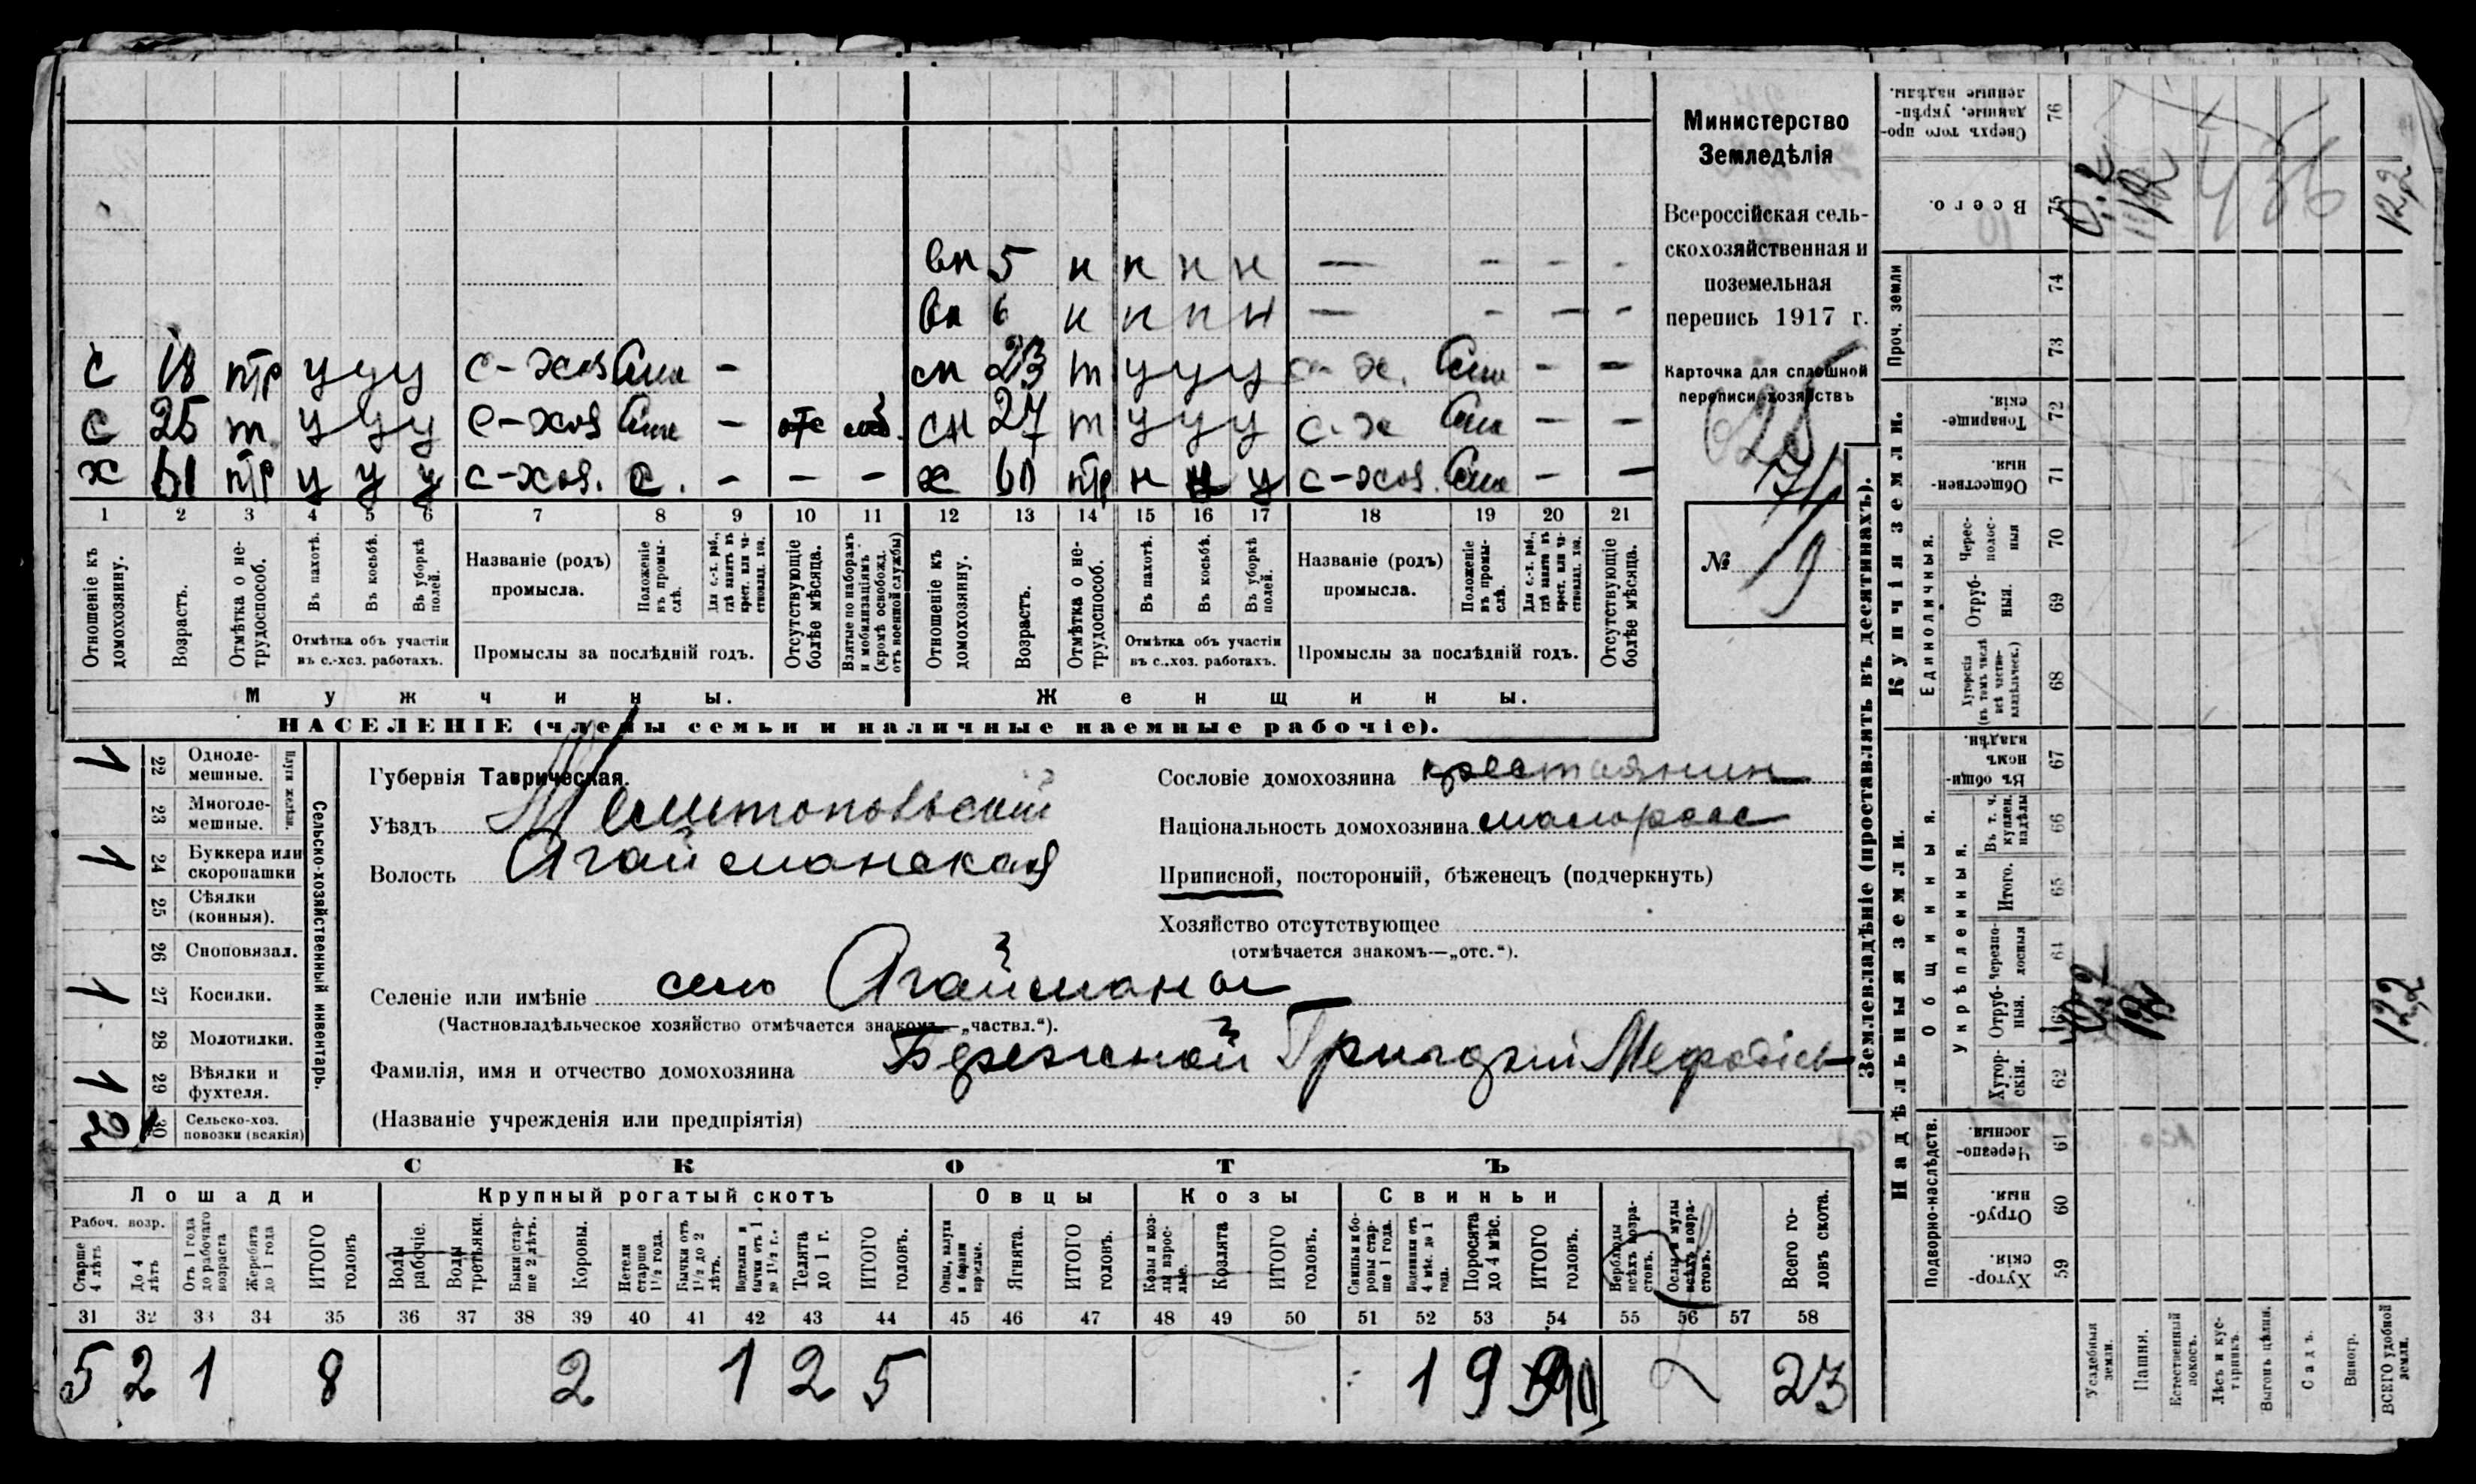 Министерство
Земледѣлія
Всероссійская сель-
скохозяйственная и
поземельная
перепись 1917 г.
Карточка для сплошной
переписи хозяйствъ
№ 19
вн 5 н н н н — - - -
вн 6 н н н н — - - -
с 18 нтр у у у с-хоз Сам - сн 23 т у у у с-х. Сам - -
с 25 т у у у с-хоз Сам - отс моб. сн 27 т у у у с-х Сам - -
х 61 нтр у у у с-хоз. С. - - - х 60 нтр н н у с-хоз. Сам - -
1 2 3 4 5 6 7 8 9 10 11 12 13 14 15 16 17 18 19 20 21
Отношеніе къ домохозяину.
Возрастъ.
Отмѣтка о не-трудоспособ.
Въ пахотѣ.
Въ косьбѣ.
Въ уборкѣ полей.
Отмѣтка объ участіи въ с.-хоз. работахъ.
Названіе (родъ) промысла.
Положеніе въ промы-слѣ.
Для с.-х. раб., гдѣ занятъ въ крест. или ча-стновлад. хоз.
Промыслы за послѣдній годъ.
Отсутствующіе болѣе мѣсяца.
Взятые по наборамъ и мобилизаціямъ (кромѣ освобожд. отъ военной службы)
Отношеніе къ домохозяину.
Возрастъ.
Отмѣтка о не-трудоспособ.
Въ пахотѣ.
Въ косьбѣ.
Въ уборкѣ полей.
Отмѣтка объ участіи въ с.-хоз. работахъ.
Названіе (родъ) промысла.
Положеніе въ промы-слѣ.
Для с.-х. раб., гдѣ занята въ крест. или ча-стновлад. хоз.
Промыслы за послѣдній годъ.
Отсутствующіе болѣе мѣсяца.
Мужчины. Женщины.
НАСЕЛЕНІЕ (члены семьи и наличные наемные рабочіе).
Сельско-хозяйственный инвентарь.
Плуги желѣзн.
1 22 Одноле-мешные.
23 Многоле-мешные.
1 24 Буккера или скоропашки
25 Сѣялки (конныя).
26 Сноповязал.
1 27 Косилки.
28 Молотилки.
1 29 Вѣялки и фухтеля.
30 Сельско-хоз. повозки (всякія)
Губернія Таврическая.
Уѣздъ Мелитопольскій
Волость Агайманская
Сословіе домохозяина крестьянин
Національность домохозяина малоросс
Приписной, посторонній, бѣженецъ (подчеркнуть)
Хозяйство отсутствующее
(отмѣчается знакомъ—„отс.“).
Селеніе или имѣніе село Агайманы
(Частновладѣльческое хозяйство отмѣчается знакомъ—„частвл.“).
Фамилія, имя и отчество домохозяина Бережной Григорій Мефодіев
(Названіе учрежденія или предпріятія)
СКОТЪ
Лошади Крупный рогатый скотъ Овцы Козы Свиньи
Рабоч. возр.
Старше 4 лѣтъ
До 4 лѣтъ
Отъ 1 года до рабочаго возраста
Жеребята до 1 года
ИТОГО головъ
Волы рабочіе.
Волы третьяки.
Быки стар-ше 2 лѣтъ.
Коровы.
Нетели старше 1½ года.
Бычки отъ 1½ до 2 лѣтъ.
Подтелки и бычки отъ 1 до 1½ г.
Телята до 1 г.
ИТОГО головъ.
Овцы, валухи и бараны взрослые.
Ягнята.
ИТОГО головъ.
Козы и коз-лы взрос-лые.
Козлята
ИТОГО головъ.
Свиньи и бо-ровы стар-ше 1 года.
Подсвинки отъ 4 мѣс. до 1 года.
Поросята до 4 мѣс.
ИТОГО головъ.
Верблюды всѣхъ возра-стовъ.
Ослы и мулы всѣхъ возра-стовъ.
Всего го-ловъ скота.
31 32 33 34 35 36 37 38 39 40 41 42 43 44 45 46 47 48 49 50 51 52 53 54 55 56 57 58
5 2 1 8 2 1 2 5 1 9 10 23
Землевладѣніе (проставлять въ десятинахъ).
Купчія земли.
Надѣльныя земли.
Сверхъ того про-данные, укрѣп-ленные надѣлы. 76
Всего. 75
Проч. земли 74 73
Товарище-скія. 72
Обществен-ныя. 71
Единоличныя.
Черес-полос-ныя 70
Отруб-ныя. 69
Хуторскія (въ томъ числѣ всѣ частно-владѣльческ.) 68
Общинныя.
Въ общи-нномъ владѣн. 67
Укрѣпленныя.
Въ т. ч. куплен. надѣлы 66
Итого. 65
Черезпо-лосныя 64
Отруб-ныя. 63
Хутор-скія. 62
Подворно-наслѣдств.
Черезпо-лосныя. 61
Отруб-ныя. 60
Хутор-скія. 59
Усадебныя земли. 0,2
Пашня. 12
Естественный покосъ.
Лѣсъ и кус-тарникъ.
Выгонъ цѣлин.
Садъ.
Виногр.
ВСЕГО удобной земли. 12,2 12,2
436